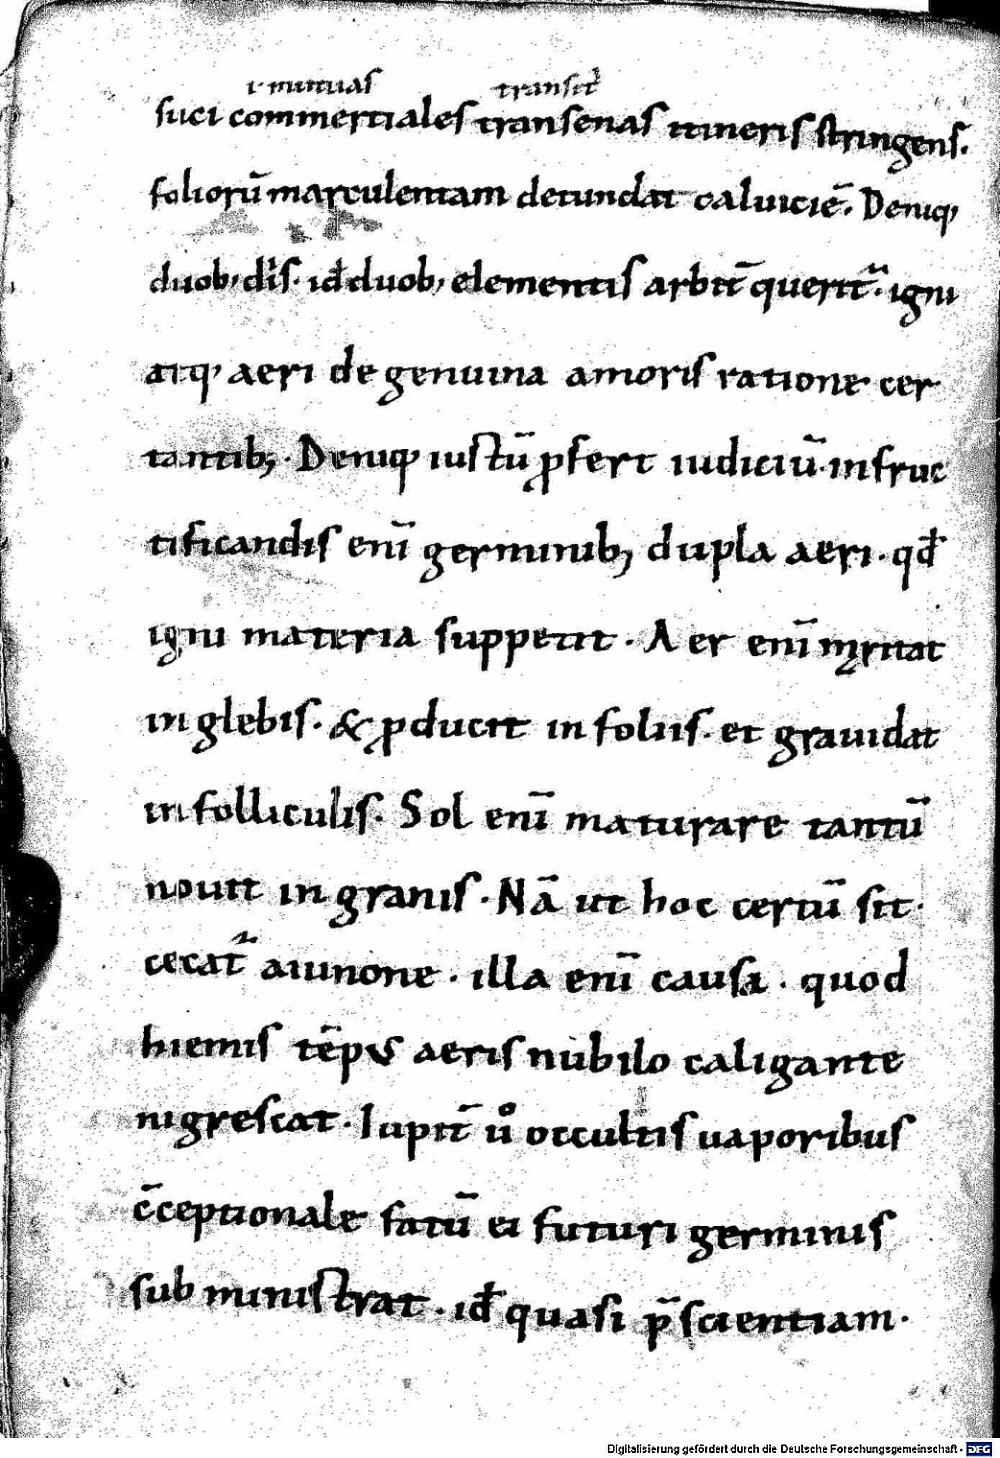 i· mutuas transit᷑
suci commertiales transenas itineris stringens.
foliorū marculentam detundat caluiciē. Deniq;
duob; diis. id̄ duob; elementis arbit̄ querit᷑. igni
atq; aeri de genuina amoris ratione cer
tantib; . Deniq; iustū ꝓfert iudiciū. in fruc
tificandis enī germinib; dupla aeri . qd̄
igni materia suppetit . Aer enī męritat
in glebis . & ꝓducit in foliis . et grauidat
in folliculis . Sol enī maturare tantū
nouit in granis . Nā ut hoc certū sit .
cecat᷑ a iunone . illa enī causa . quod
hiemis tēpus aeris nubilo caligante
nigrescat . Iupit̄ uͦ occultis uaporibus
c̄ceptionale fatū ei futuri germinis
subministrat . id̄ quasi p̄scientiam .
Digitalisierung gefördert durch die Deutsche Forschungsgemeinschaft - DFG